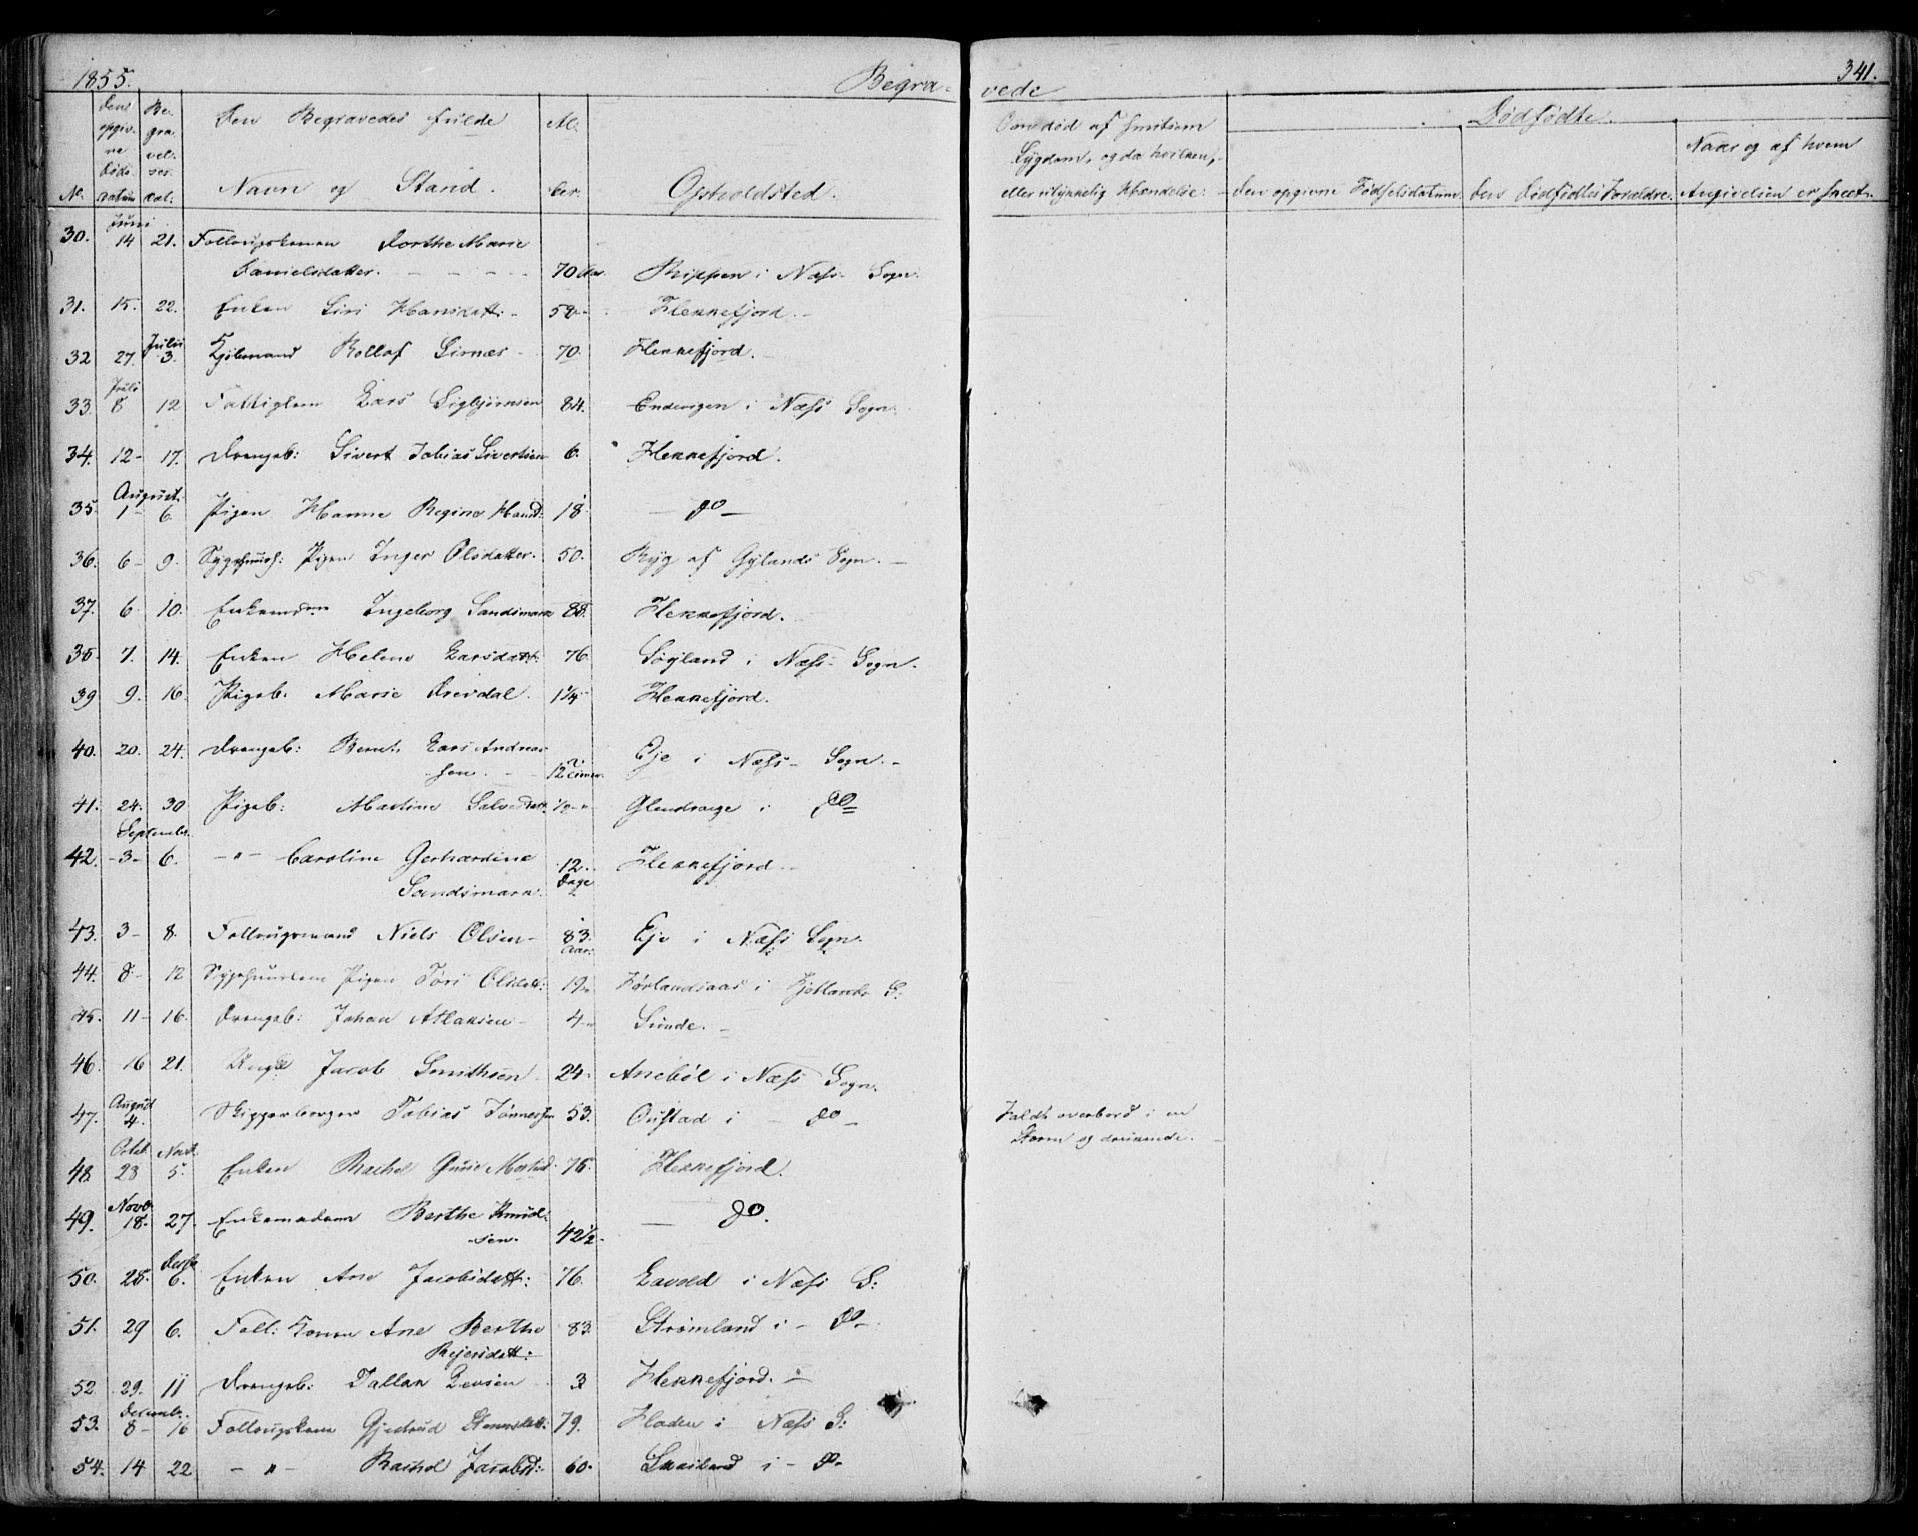 1855. Begra- vede 341.
Den opgivne Døds Datum
Begravelses Dat:
Den Begravedes fulde
Navn og Stand.
Al-
der.
Opholdsted.
Om død af smitsom
Sygdom, og da hvilken,
eller ulykkelig Hændelse:
Dødfødte.
Den opgivne Fødselsdatum.
Den Dødfødtes Forældre.
Naar og af hvem
Angivelsen er skeet.
No.
Juni
30. 14 21. Follougskonen Dorthe Marie
Danielsdatter. 70 Aar Rippen i Næss Sogn.
31. 15. 22. Enken Siri Hansdatt: Flekkefjord.
Juli
32 27. 3. Rollaf Sirnæs 70. Flekkefjord.
Juli
33. 8 12 Fattiglem Lars Sigbjørnsen 84. Endengen i Næss Sogn.
34. 12- 17. Drengeb: Sivert Tobias Sivertsen 6. Flekkefjord.
August
35. 1- 6. Pigen Hanne Regine 18. do
36. 6- 9. Pigen Inger Olsdatter. 50. Ryg af Gylands Sogn.
37. 6 10. Ingeborg Sandsmark 88. Flekkefjord.
38. 7. 14. Enken Helene Larsdatt: 76. i Næss Sogn.
39 9. 16. Pigeb. Marie Drevdal. 1¼ Flekkefjord.
40. 20. 24. Drengeb: Bernt Lars Andreas-
sen. 12 Timer Eje i Næss Sogn.
41. 24. 30 Pigeb: Martine Glendrange i do
September
42. 3- 6. -"- Caroline Gerhardine
Sandsmark. 12 Dage Flekkefjord.
43. 3- 8. Follougsmand Niels Olsen 83. Aar: Eje i Næss Sogn.
44. 8- 12 Pigen Tøri Olsdatt: 19 i Fjotlands S:
45. 11- 16. Drengeb: Johan Atlaksen 4 Sunde.
46. 16 21. Jacob Smithsen 24. Anebøl i Næss Sogn.
August
47. 4. Tobias Tønnessen 53. Oustad i do Faldt overbord i en
Storm og druknede.
Octob. Novb.
48 28 5. Enken Rachel Flekkefjord.
Novb.
49. 18. 27. Enkemadam Berthe Knud-
sen. 42½ do.
Decbr
50. 25. 6. Enken Ane Jacobsdatt: 76. Lavold i Næss S:
51. 29 6. Foll: Konen Ane Berthe
Rejersdatt: 83. Strømland i do
52 29. 11 Drengeb: Tallak 3 Flekkefjord.
December
53. 8- 16 Follougskone Gjertrud 79. Floden i Næss S:
54. 14 22. -"- Rachel Jacobsd: 60. i do